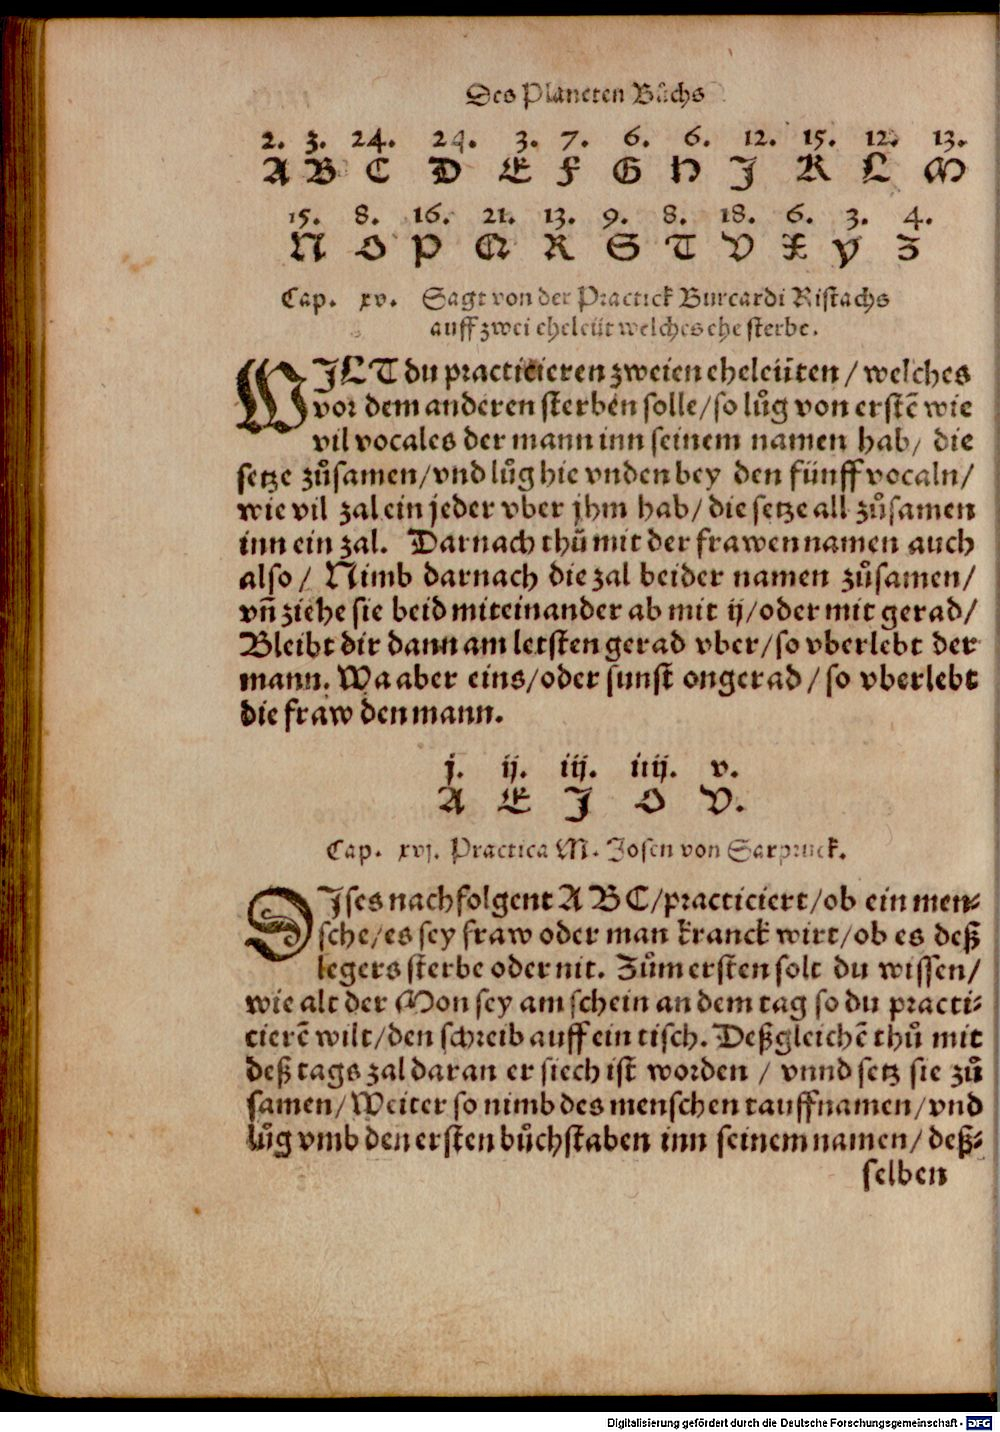 Des Planeten Bůchs
2. 3. 24. 24. 3. 7. 6. 6. 12. 15. 12. 13.
A B C D E F G H J K L M
15. 8. 16. 21. 13. 9. 8. 18. 6. 3. 4.
N O P Q R S T V X Y Z
Cap. xv. Sagt von der Practick Burcardi Ristachs
auff zwei eheleüt welches ehe sterbe.
WJLT du practicieren zweien eheleüten / welches
vor dem anderen sterben solle / so lůg von erstē wie
vil vocales der mann inn seinem namen hab / die
setze zůsamen / vnd lůg hie vnden bey den fünff vocaln /
wie vil zal ein jeder vber jhm hab / die setze all zůsamen
inn ein zal. Darnach thů mit der frawen namen auch
also / Nimb darnach die zal beider namen zůsamen /
vñ ziehe sie beid miteinander ab mit ij / oder mit gerad /
Bleibt dir dann am letsten gerad vber / so vberlebt der
mann. Wa aber eins / oder sunst ongerad / so vberlebt
die fraw den mann.
j. ij. iij. iiij. v.
A E J O V.
Cap. xvj. Practica M. Josen von Sarpruck.
DJses nachfolgent A B C / practiciert / ob ein men⸗
sche / es sey fraw oder man kranck wirt / ob es deß
legers sterbe oder nit. Zům ersten solt du wissen /
wie alt der Mon sey am schein an dem tag so du practi⸗
cierē wilt / den schreib auff ein tisch. Deßgleichē thů mit
deß tags zal daran er siech ist worden / vnnd setz sie zů
samen / Weiter so nimb des menschen tauffnamen / vnd
lůg vmb den ersten bůchstaben inn seinem namen / deß⸗
selben
Digitalisierung gefördert durch die Deutsche Forschungsgemeinschaft - DFG